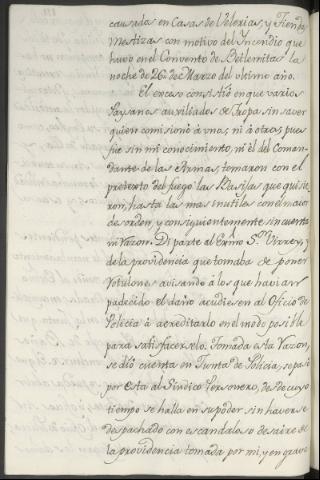 causadas en Casas de Velerias, y Tiendas
Mestizas con motivo del Yncendio que
huvo en el Convento de Betlemitas la
noche de 26 de Marzo del ultimo año.
El exceso consistió en que varios
Paysanos auxiliados de Tropa sin saver
quien comisionó à unos, ni à otros, pues
fue sin mi conocimiento, ni el del Coman-
dante de las Armas, tomaron con el
pretexto del fuego las Basijas que quisie
ron, hasta las mas inutiles con el maior
desorden, y consiguientemente sin cuenta
ni razon. Di parte al Exmo. Sor. Virrey, y
de la providencia que tomaba de poner
Rotulones avisando à los que havian
padecido el daño acudiesen al Oficio de
Policia à acreditarlo en el modo posible
para satisfacerselo. Tomada esta Razon,
se dió cuenta en Junta de Policia, se pasó
por esta al Sindico Personero, desde cuyo
tiempo se halla en su poder sin haverse
despachado con escandaloso desaire de
la providencia tomada por mi, y en grave